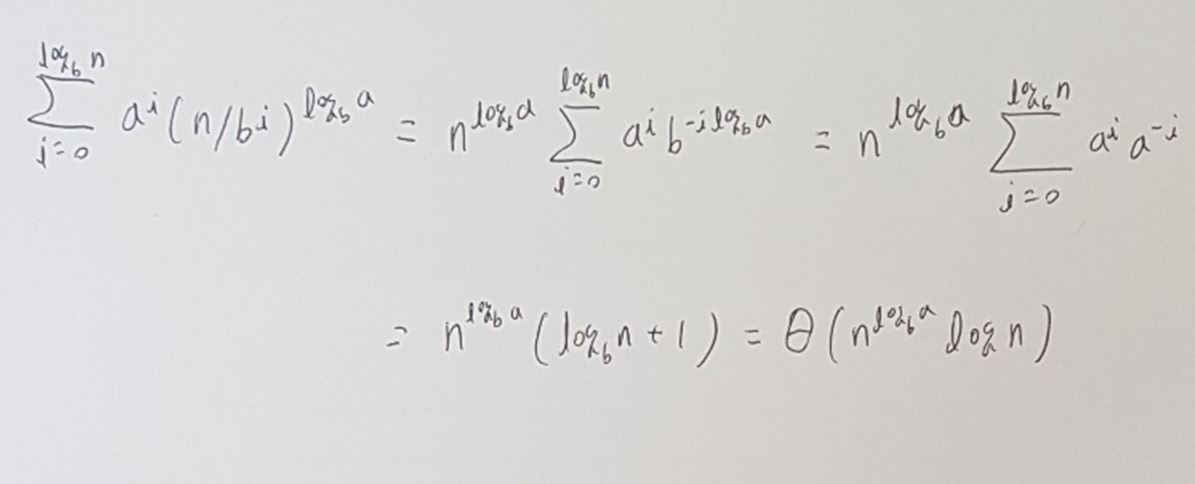 $\sum_{i=0}^{\log_b n} a^i (n/b^i)^{\log_b a} = n^{\log_b a} \sum_{i=0}^{\log_b n} a^i b^{-i \log_b a} = n^{\log_b a} \sum_{i=0}^{\log_b n} a^i a^{-i}$
$= n^{\log_b a} (\log_b n + 1) = \theta (n^{\log_b a} \log n)$